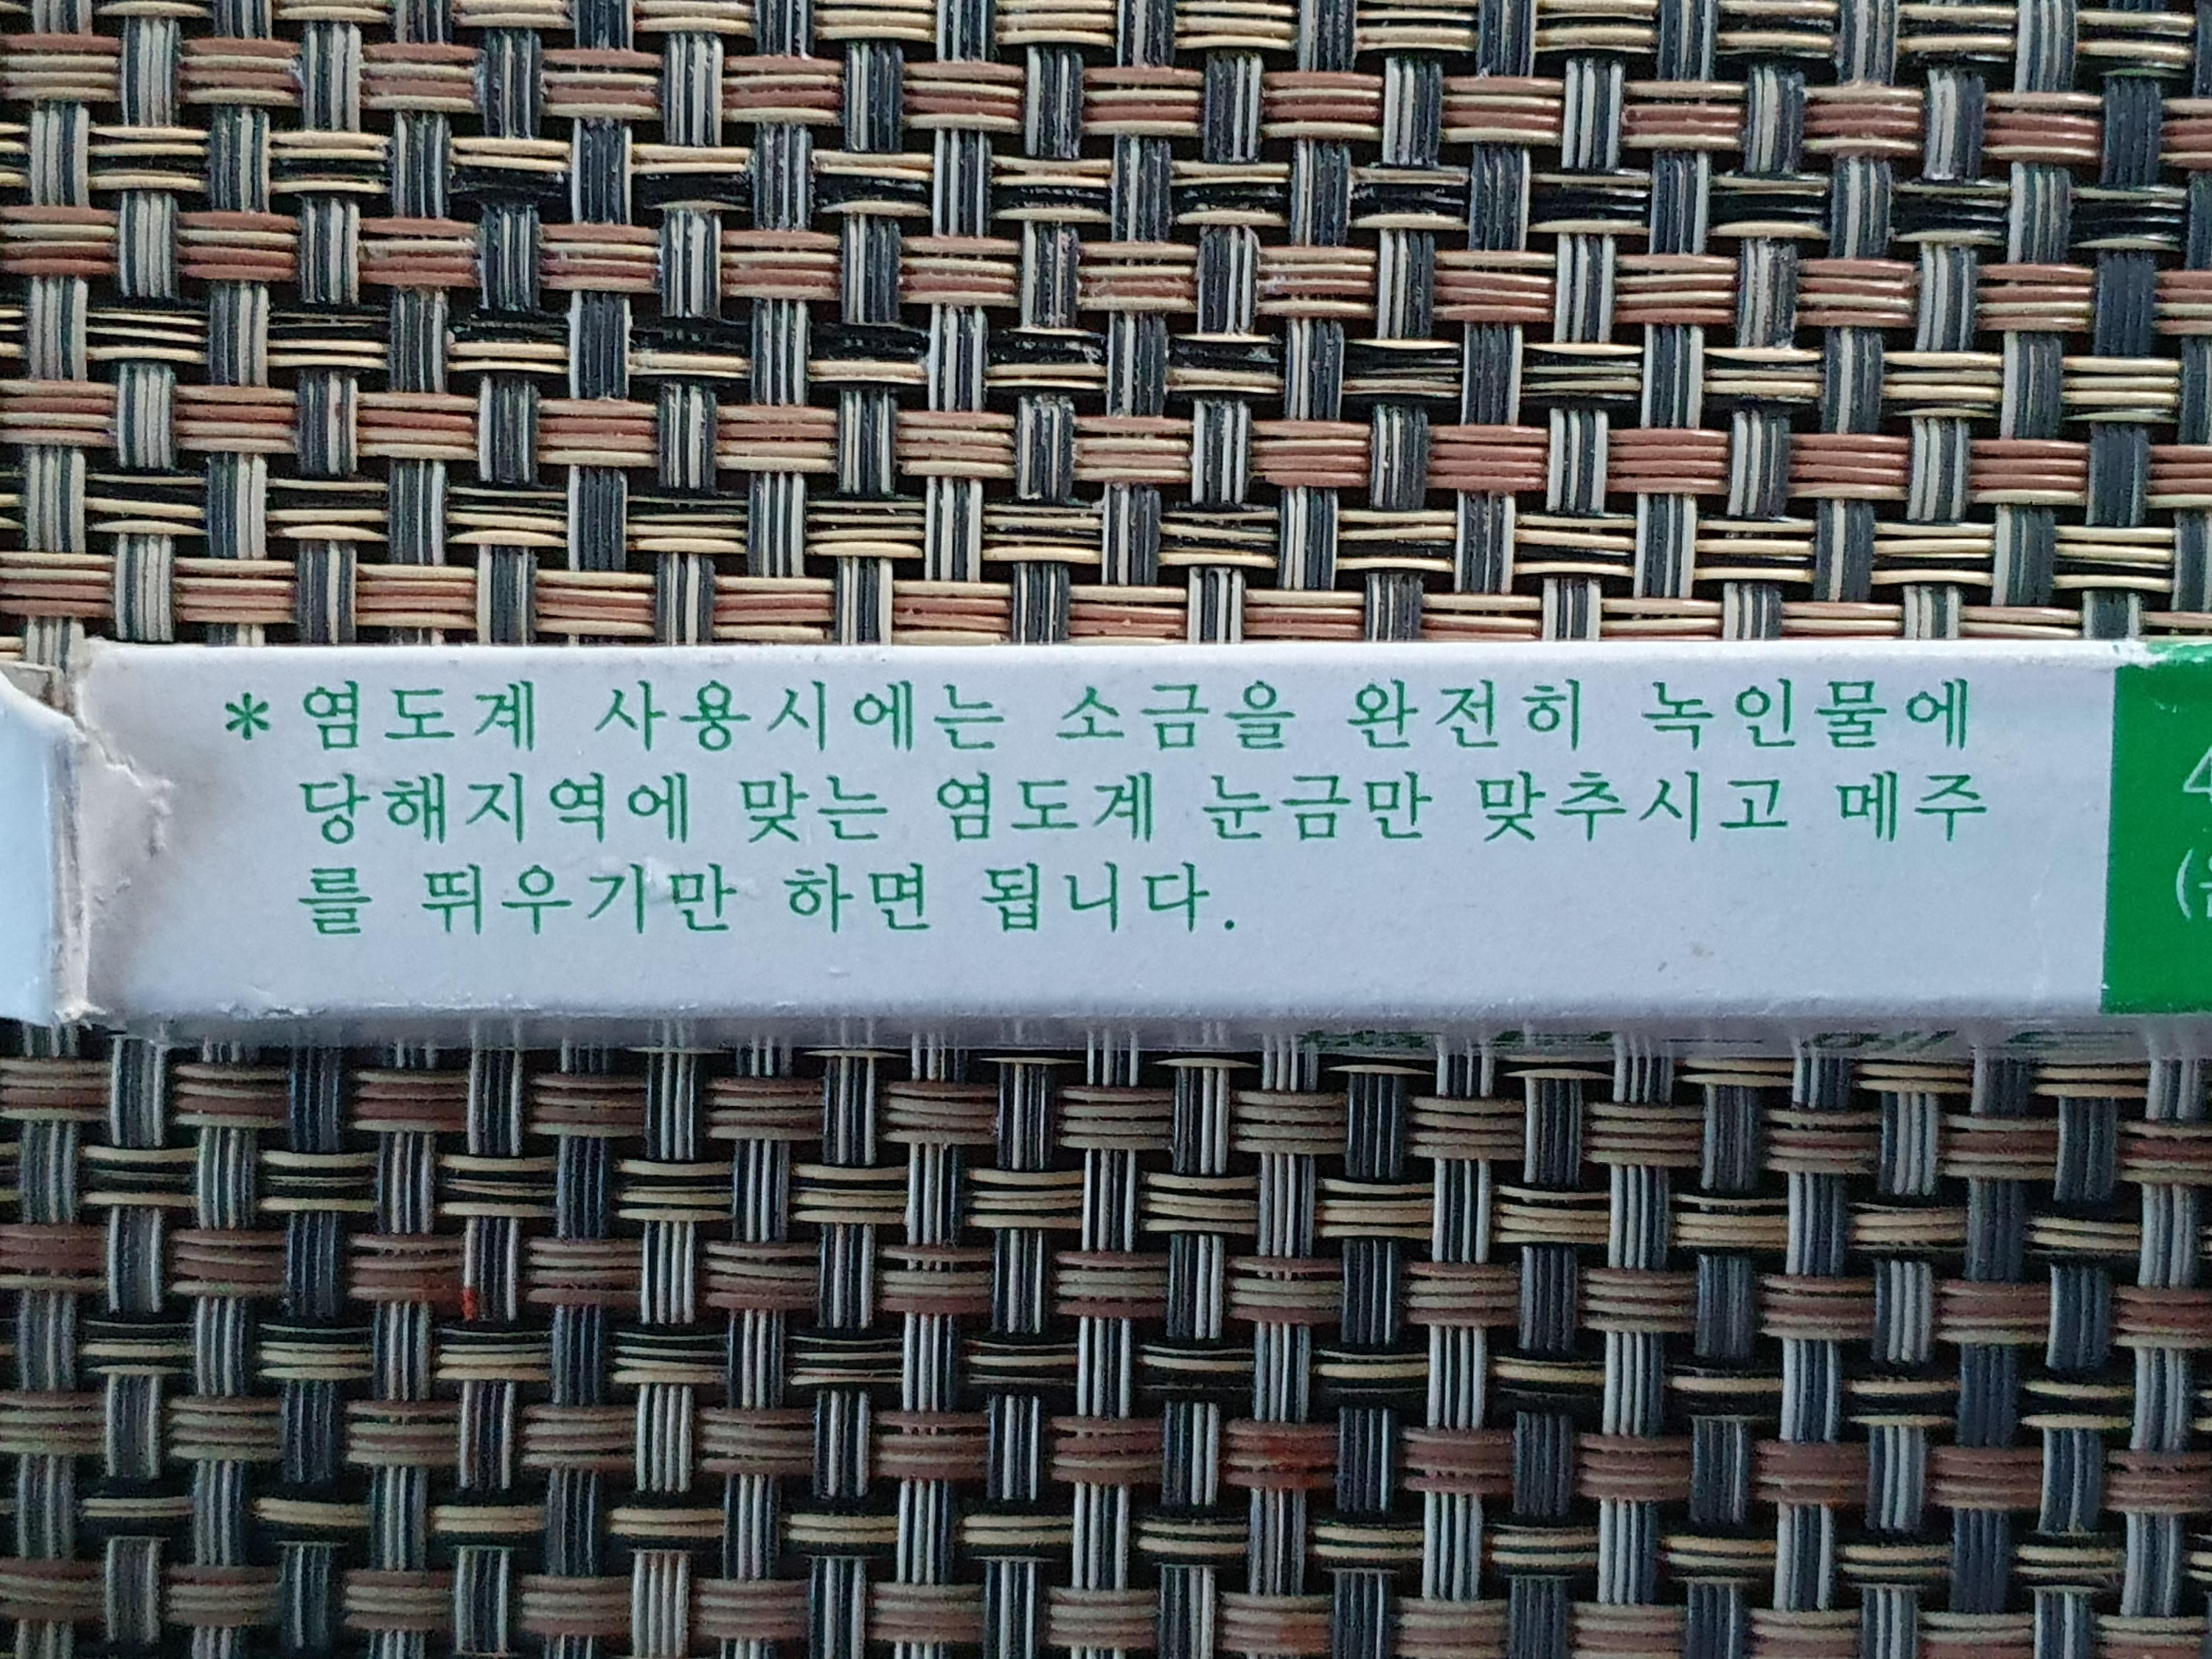 * 염도계 사용시에는 소금을 완전히 녹인물에
당해지역에 맞는 염도계 눈금만 맞추시고 메주
를 뛰우기만 하면 됩니다.